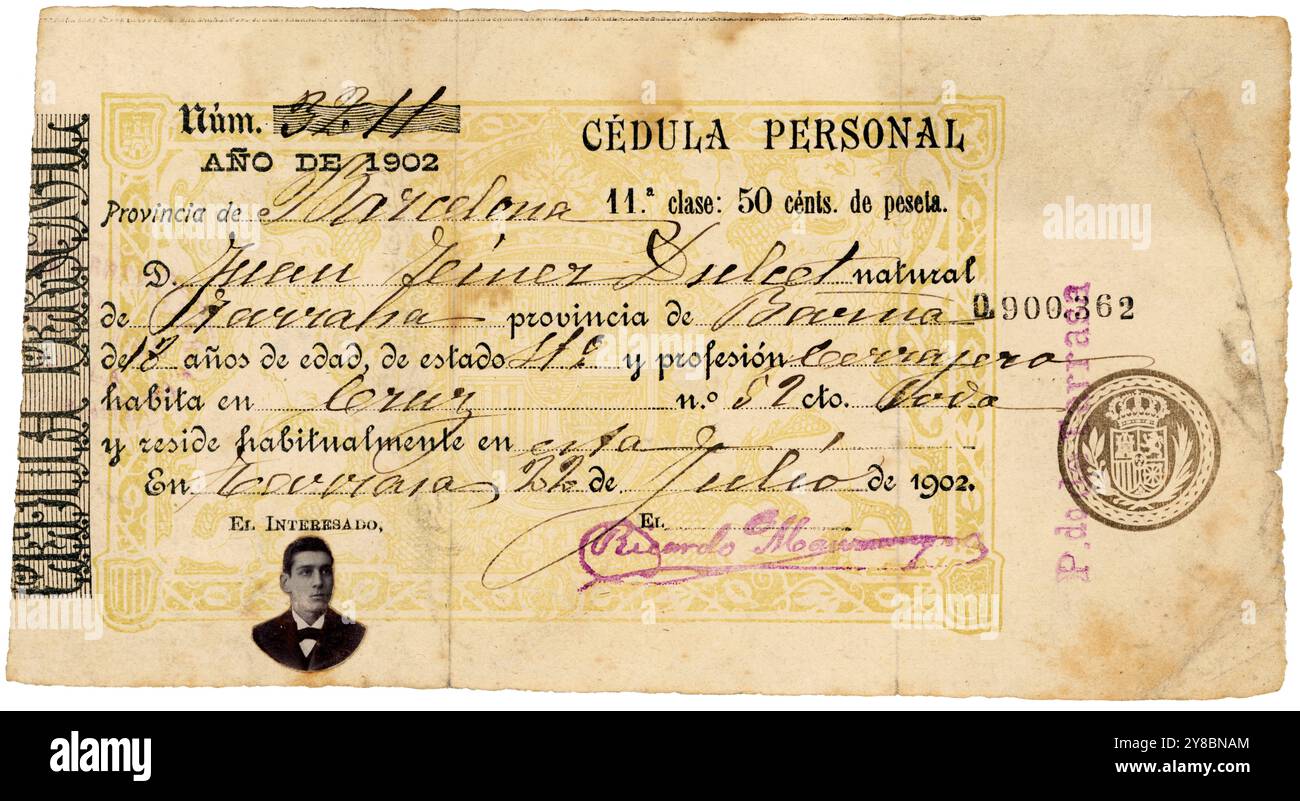 Núm. 3211
AÑO DE 1902
CÉDULA PERSONAL
Provincia de Barcelona 11.ª clase: 50 cénts. de peseta.
D. Juan Dulcet natural
de Tarrasa provincia de Barna
0,900,362
de años de edad, de estado y profesión Cerrajero
habita en Cruz n.º 52 cto.
y reside habitualmente en esta
En Tarrasa, 22 de Julio de 1902.
EL INTERESADO,
EL
Ricardo
CÉDULA PERSONAL
alamy
Image ID: Y8BNAM
www.alamy.com